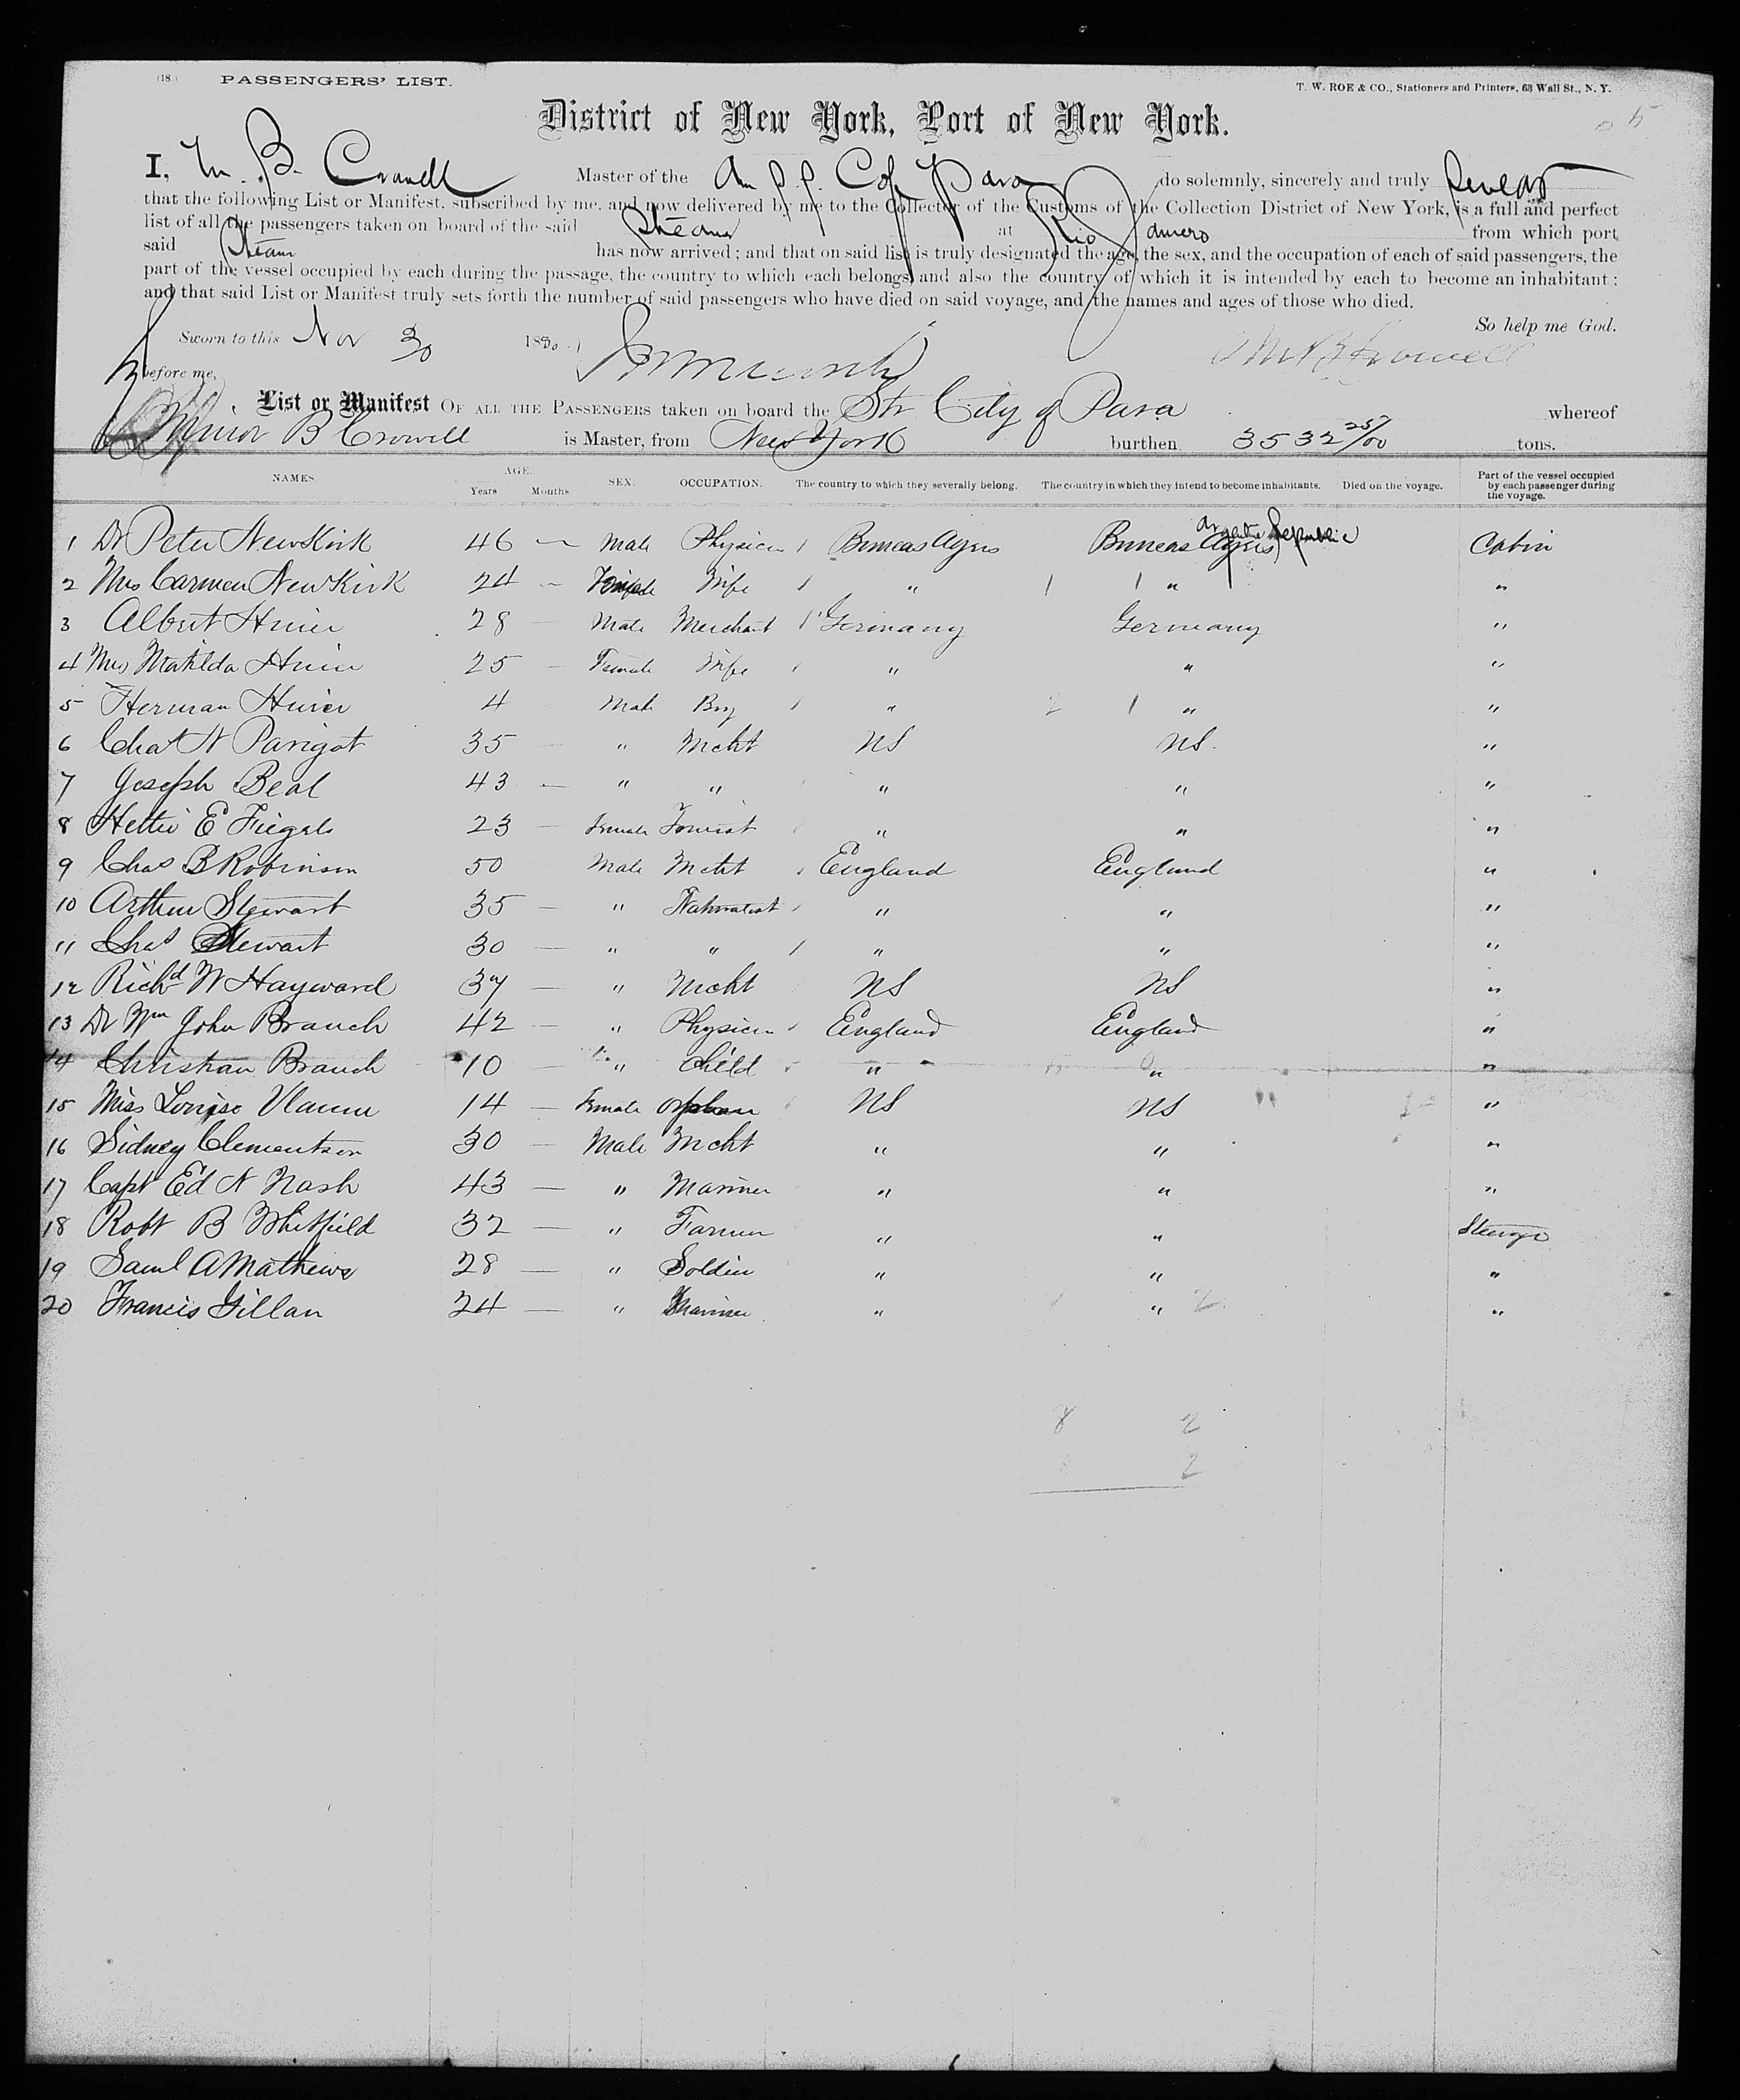 (18.) PASSENGERS' LIST. T. W. ROE & CO., Stationers and Printers, 63 Wall St., N. Y.
District of New York, Port of New York.
I, M. B. Crowell Master of the Am S.S. C of Para do solemnly, sincerely and truly swear
that the following List or Manifest, subscribed by me, and now delivered by me to the Collector of the Customs of the Collection District of New York, is a full and perfect
list of all the passengers taken on board of the said Steamer at Rio Janeiro from which port
said Steamer has now arrived; and that on said list is truly designated the age, the sex, and the occupation of each of said passengers, the
part of the vessel occupied by each during the passage, the country to which each belongs, and also the country of which it is intended by each to become an inhabitant;
and that said List or Manifest truly sets forth the number of said passengers who have died on said voyage, and the names and ages of those who died.
So help me God.
Sworn to this Nov 30 1880 M B Crowell
before me,
List or Manifest OF ALL THE PASSENGERS taken on board the Str City of Para whereof
B Crowell is Master, from New York burthen 3532 25/100 tons.
NAMES. AGE. Years Months SEX. OCCUPATION. The country to which they severally belong. The country in which they intend to become inhabitants. Died on the voyage. Part of the vessel occupied by each passenger during the voyage.
1 Dr Peter NewKirk 46 — Male Physician Buneas Ayres Buneas Ayres Argentine Republic Cabin
2 Mrs Carmen NewKirk 24 — Female Wife " " "
3 Albert 28 — Male Merchant Germany Germany "
4 Mrs Matilda 25 — Female Wife " " "
5 Herman 4 Male Boy " " "
6 Chas N Parigot 35 — " Mcht US US. "
7 Joseph Beal 43 — " " " " "
8 Hettie E 23 — Female Tourist " " "
9 Chas B Robinson 50 Male Mcht England England "
10 Arthur Stewart 35 — " Naturalist " " "
11 Chas Stewart 30 — " " " " "
12 Richd W Hayward 37 — " Mcht US US "
13 Dr Wm John Branch 42 — " Physician England England "
14 Christian Branch 10 — " Child " " "
15 Miss Louise 14 — Female Orphan US US "
16 Sidney Clementson 30 — Male Mcht " " "
17 Capt Ed N Nash 43 — " Mariner " " "
18 Robt B Whitfield 32 — " Farmer " " Steerage
19 Saml A Mathews 28 — " Soldier " " "
20 Francis Gillan 24 — " Mariner " " "
8 2
2